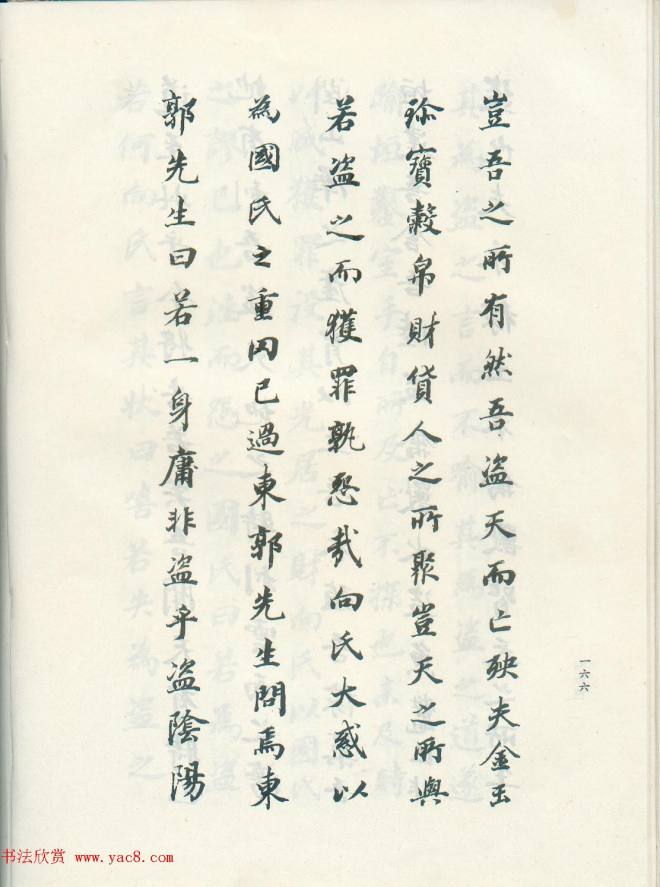 豈吾之所有然吾盜天而亡殃夫金玉
珎寶穀帛財貨人之所聚豈天之所與
若盜之而獲罪孰怨哉向氏大惑以
為國氏之重罔已過東郭先生問焉東
郭先生曰若一身庸非盜乎盜陰陽
一六六
书法欣赏 www.yac8.com